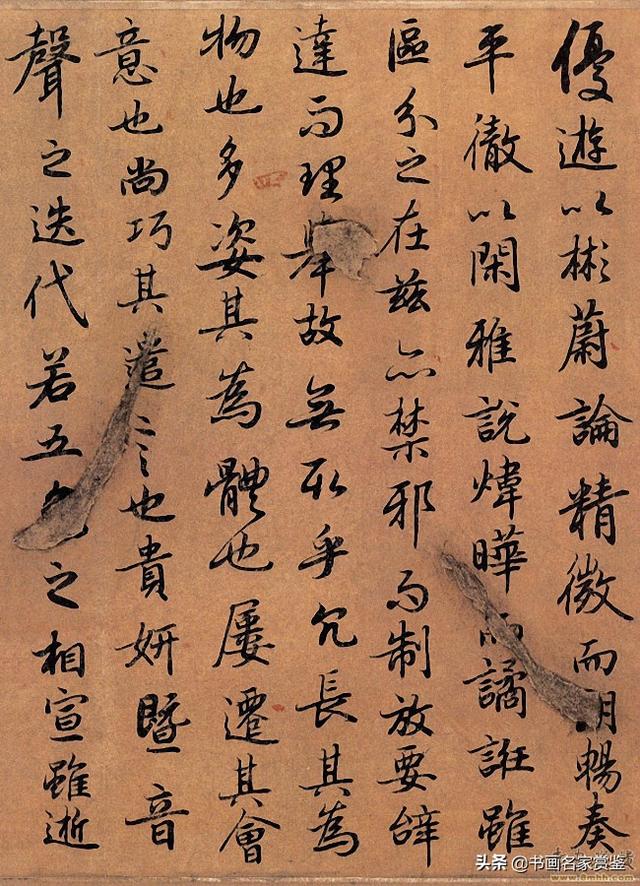 優遊以彬蔚論精微而朗暢奏
平徹以閑雅說煒曄而譎誑雖
區分之在茲亦禁邪而制放要辭
達而理舉故無取乎冗長其為
物也多姿其為體也屢遷其會
意也尚巧其遣言也貴妍暨音
聲之迭代若五色之相宣雖逝
头条 @书画名家赏鉴